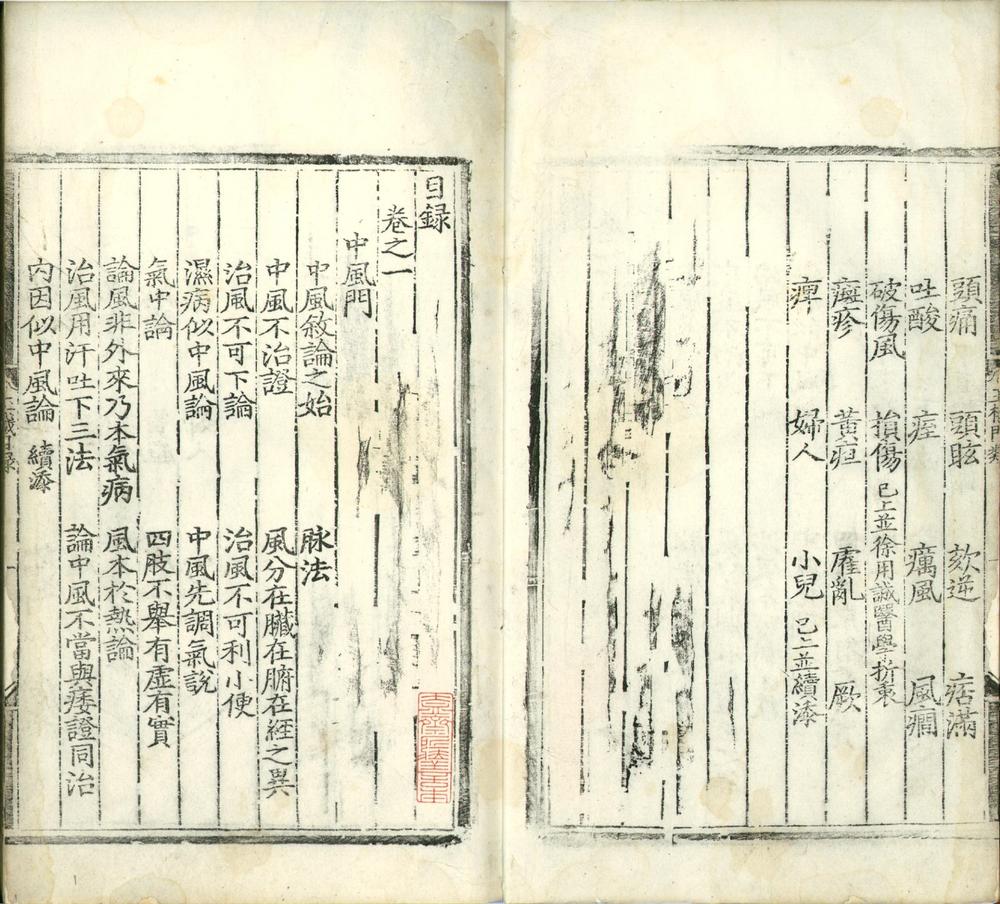 頭痛 頭眩 欬逆 痞滿
吐酸 痓 癘風 風癇
破傷風 損傷 已上並徐用誠醫學折衷
癍疹 黃疸 霍亂 厥
痺 婦人 小兒 已上並續添
目録
卷之一
中風門
中風敘論之始 脉法
中風不治證 風分在臟在腑在經之異
治風不可下論 治風不可利小便
濕病似中風論 中風先調氣說
氣中論 四肢不舉有虛有實
論風非外來乃本氣病 風本於熱論
治風用汗吐下三法 論中風不當與痿證同治
內因似中風論 續添